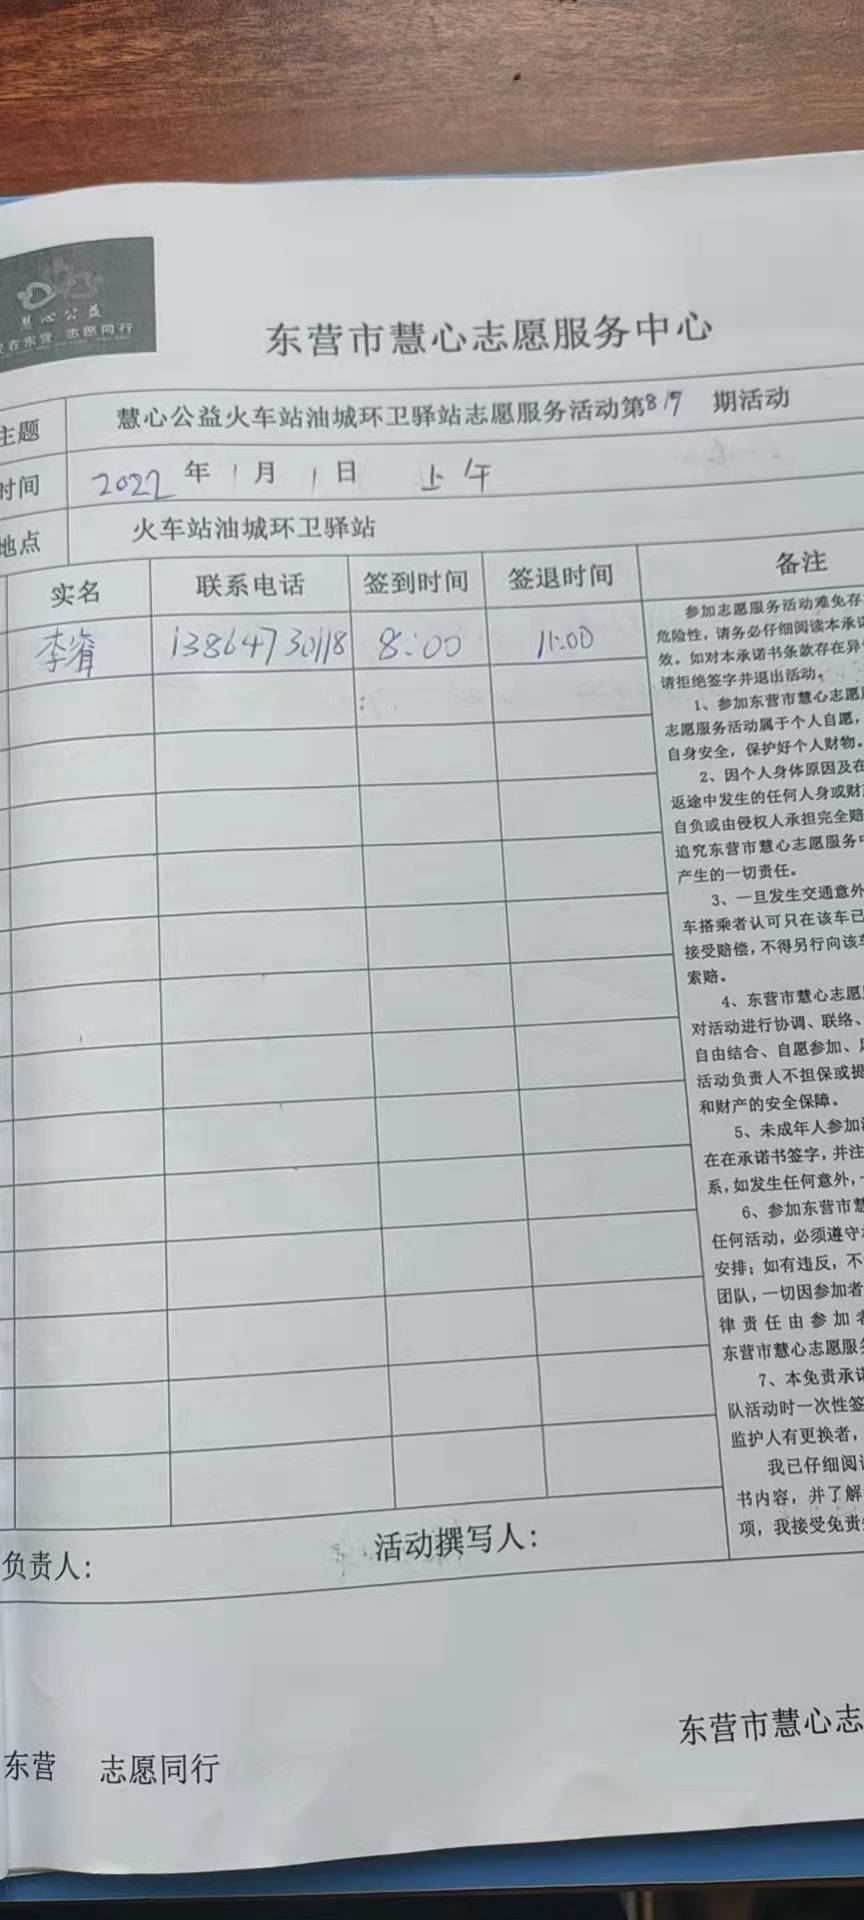 慧心公益
在东营 志愿同行
东营市慧心志愿服务中心
主题 慧心公益火车站油城环卫驿站志愿服务活动第819 期活动
时间 2022年1月1日 上午
地点 火车站油城环卫驿站
实名 联系电话 签到时间 签退时间 备注
李 13864730118 8:00 11:00
参加志愿服务活动难免存
危险性，请务必仔细阅读本承诺
效。如对本承诺书条款存在异
请拒绝签字并退出活动。
1、参加东营市慧心志愿
志愿服务活动属于个人自愿，
自身安全，保护好个人财物。
2、因个人身体原因及在
返途中发生的任何人身或财
自负或由侵权人承担完全赔
追究东营市慧心志愿服务中
产生的一切责任。
3、一旦发生交通意外
车搭乘者认可只在该车已
接受赔偿，不得另行向该车
索赔。
4、东营市慧心志愿
对活动进行协调、联络、
自由结合、自愿参加、
活动负责人不担保或提
和财产的安全保障。
5、未成年人参加
在在承诺书签字，并注
系，如发生任何意外，
6、参加东营市慧
任何活动，必须遵守
安排；如有违反，不
团队，一切因参加者
律责任由参加者
东营市慧心志愿服务
7、本免责承诺
队活动时一次性签
监护人有更换者，
我已仔细阅读
书内容，并了解
项，我接受免责
负责人： 活动撰写人：
东营 志愿同行 东营市慧心志